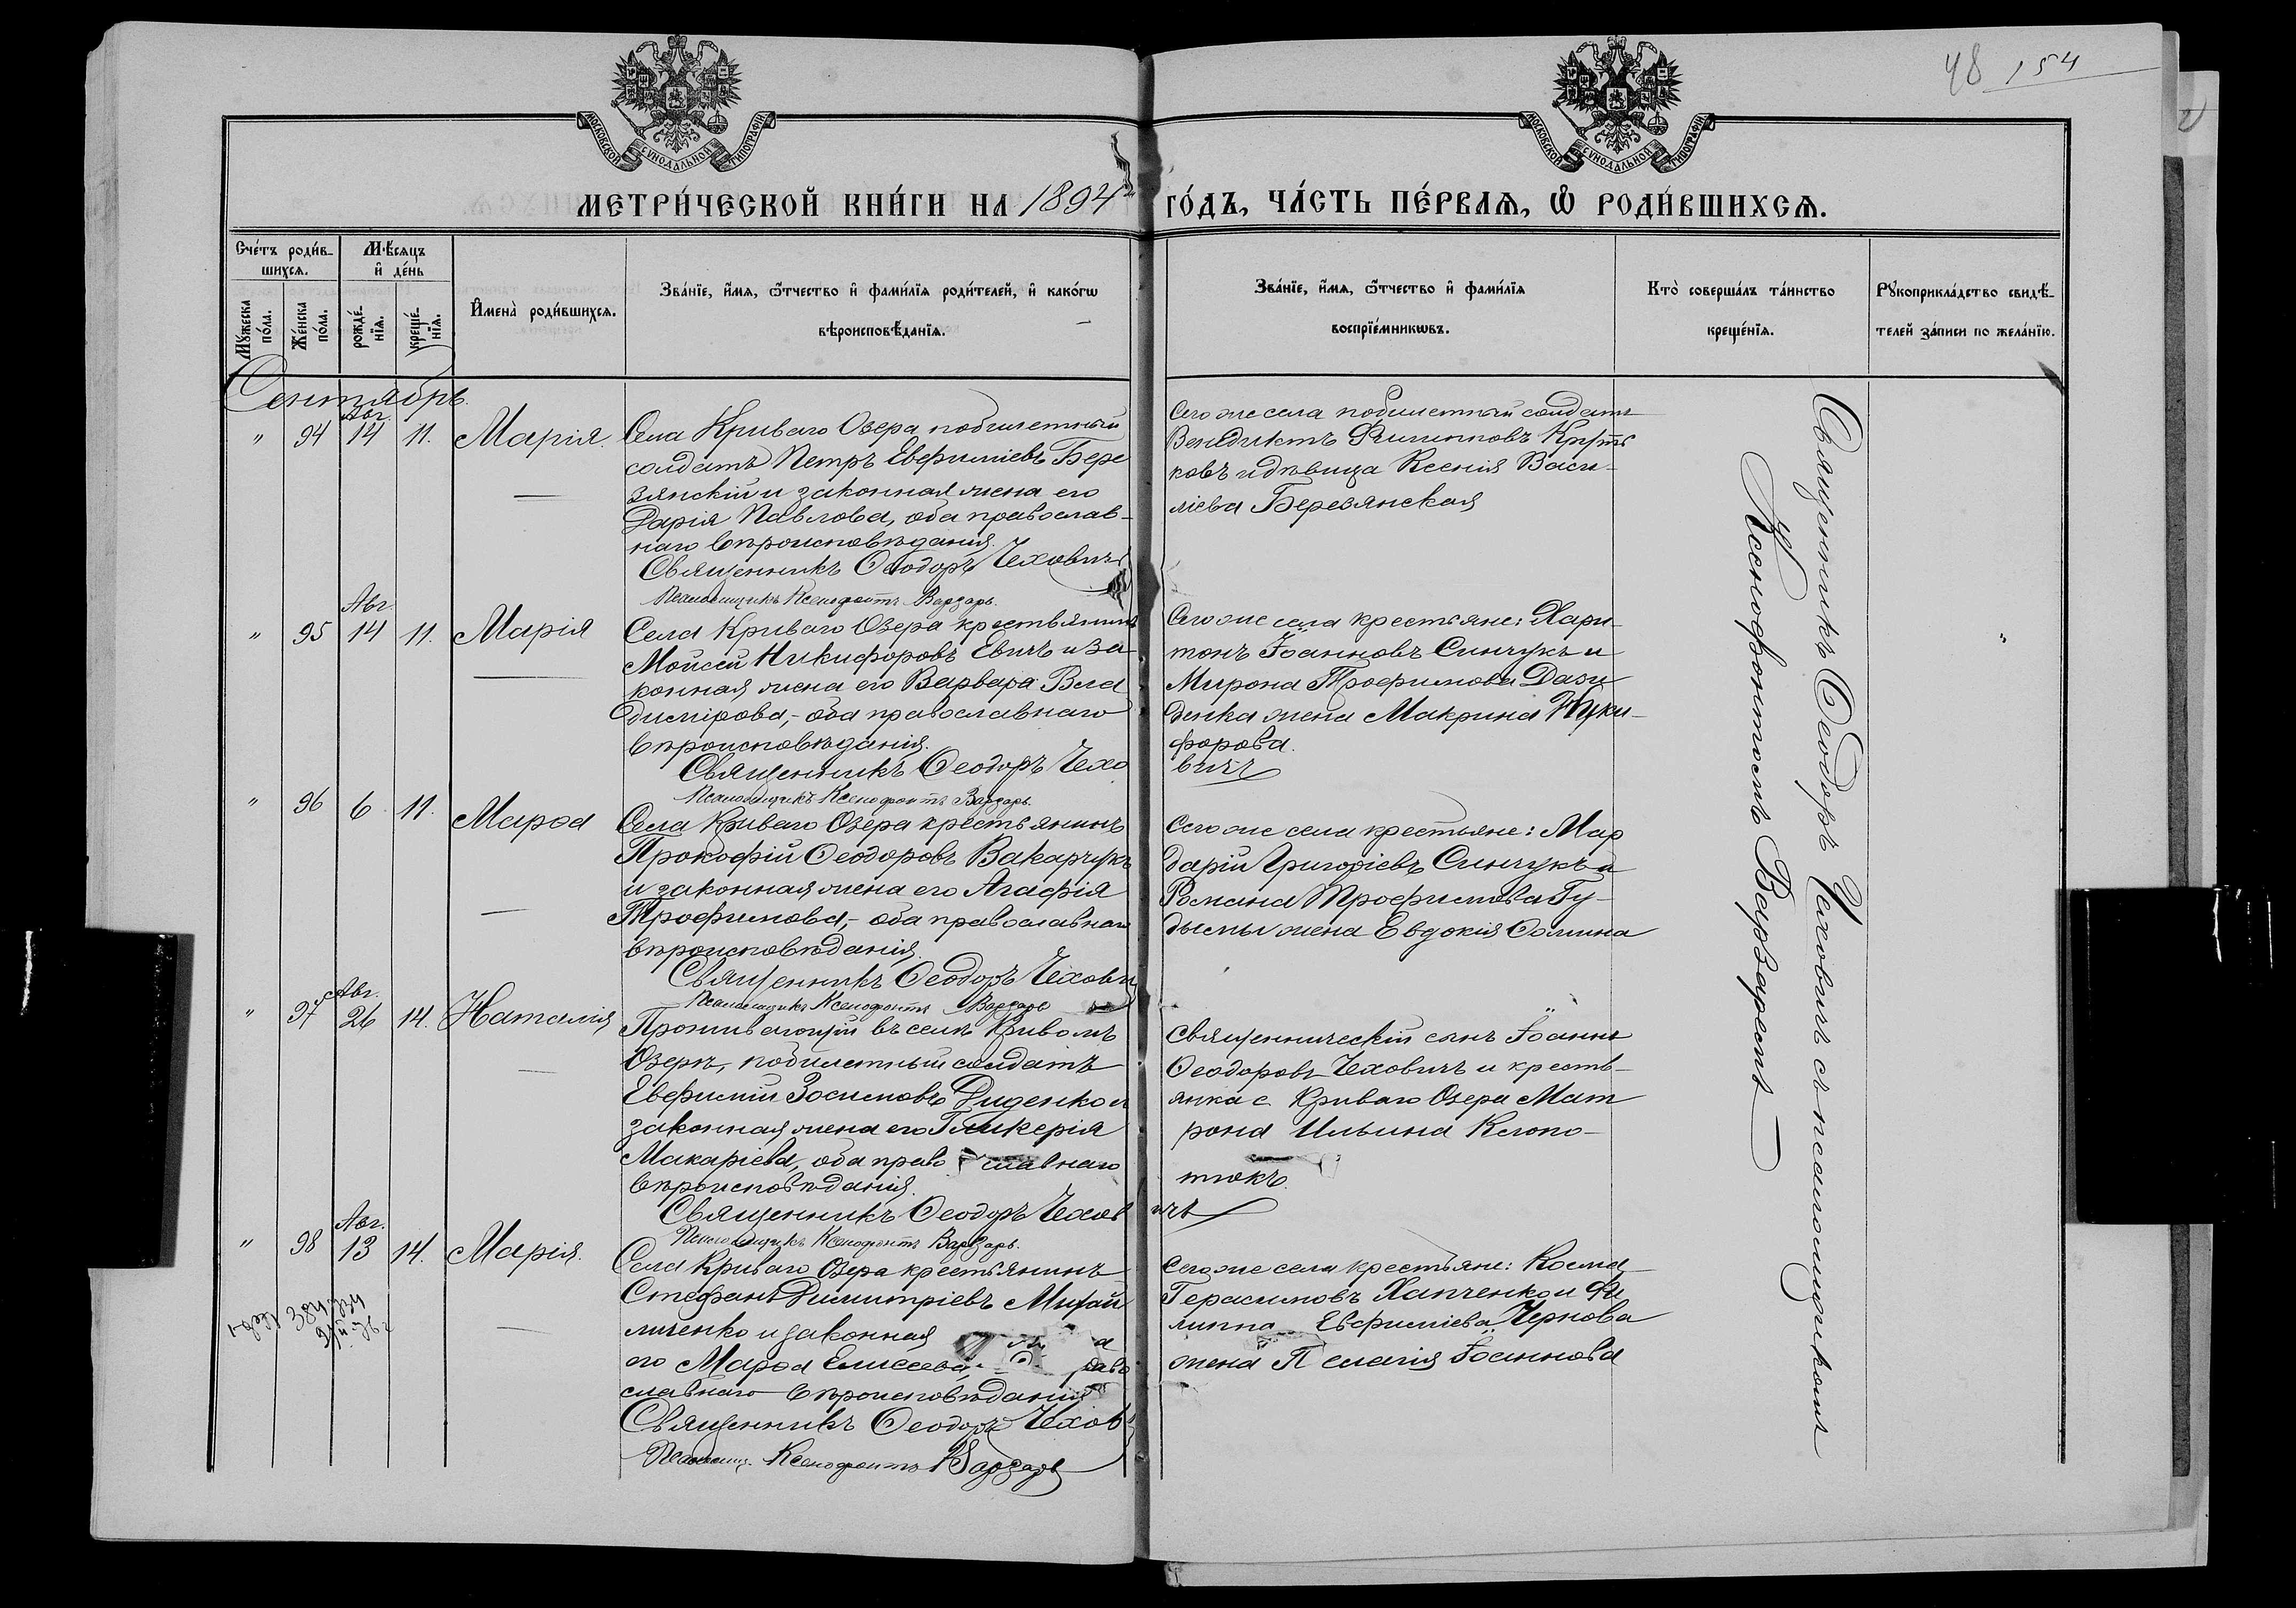 48 154
МОСКОВСКОЙ СѴНОДАЛЬНОЙ ТИПОГРАФІИ
МОСКОВСКОЙ СѴНОДАЛЬНОЙ ТИПОГРАФІИ
МЕТРИ́ЧЕСКОЙ КНИ́ГИ НА 1894 ГО́ДЪ, ЧА́СТЬ ПЕ́РВАѦ, Ѽ РОДИ́ВШИХСѦ.
Сче́тъ роди́в-
шихсѧ.
Мꙋ́жеска по́ла.
Же́нска по́ла.
Мѣ́сѧцъ
и҆ де́нь
рожде́-
нїѧ.
креще́-
нїѧ.
И҆мена̀ роди́вшихсѧ.
Зва́нїе, и҆́мѧ, ѻ҆́тчество и҆ фами́лїѧ роди́телей, и҆ како́гѡ
вѣроисповѣ́данїѧ.
Зва́нїе, и҆́мѧ, ѻ҆́тчество и҆ фами́лїѧ
воспрїе́мникѡвъ.
Кто̀ соверша́лъ та́инство
креще́нїѧ.
Рꙋкоприкла́дство свидѣ́-
телей за́писи по жела́нїю.
Сентябрь
" 94 Авг. 14 11. Марія
Села Криваго Озера побилетный
солдатъ Петръ Евфиміевъ Бере
зянскій и законная жена его
Дарія Павлова, оба православ-
наго вѣроисповѣданія.
Священникъ Ѳеодоръ Чеховичъ
Псаломщикъ Ксенофонтъ Варзарь.
Сего же села побилетный солдатъ
Венедиктъ Филипповъ
ковъ и дѣвица Ксенія Васи-
ліева Березянская
" 95 Авг. 14 11. Марія
Села Криваго Озера крестьянинъ
Мойсей Никифоровъ Евичъ и за-
конная жена его Варвара Вла
димірова,- оба православнаго
вѣроисповѣданія.
Священникъ Ѳеодоръ Чехо
вичъ
Псаломщикъ Ксенофонтъ Варзарь.
Сего же села крестьяне: Хари-
тонъ Іоанновъ Синчукъ и
Мирона Трофимова Дави
денка жена Макрина Ники-
форова.
" 96 6 11. Марѳа
Села Криваго Озера крестьянинъ
Прокофій Ѳеодоровъ Вакарчукъ
и законная жена его Агафія
Трофимова,- оба православнаго
вѣроисповѣданія.
Священникъ Ѳеодоръ Чехович
Псаломщикъ Ксенофонтъ Варзарь
Сего же села крестьяне: Мар
дарій Григоріевъ Синчукъ и
Романа Трофимова Гу-
дымы жена Евдокія Ѳомина
" 97 Авг. 26 14. Наталія
Проживающій въ селѣ Кривомъ
Озерѣ, побилетный солдатъ
Евфимій Зосимовъ Диденко и
законная жена его Гликерія
Макаріева, оба право славнаго
вѣроисповѣданія.
Священникъ Ѳеодоръ Чехов
ичъ
Псаломщикъ Ксенофонтъ Варзарь.
Священническій сынъ Іоаннъ
Ѳеодоровъ Чеховичъ и кресть-
янка с. Криваго Озера Мат
рона Ильина Клопо-
тюкъ.
" 98 Авг. 13 14. Марія.
Села Криваго Озера крестьянинъ
Стефанъ Димитріевъ Михай
личенко и законная
его Марѳа Елисеева,
славнаго вѣроисповѣданія
Священникъ Ѳеодоръ Чехов
Псаломщ. Ксенофонтъ Варзарь
Сего же села крестьяне: Косма
Герасимовъ Хапченко и Фи
липпа Евфиміева Чернова
жена П елагія Іоаннова
Священникъ Ѳеодоръ Чеховичъ съ псаломщикомъ
Ксенофонтомъ Варзаремъ